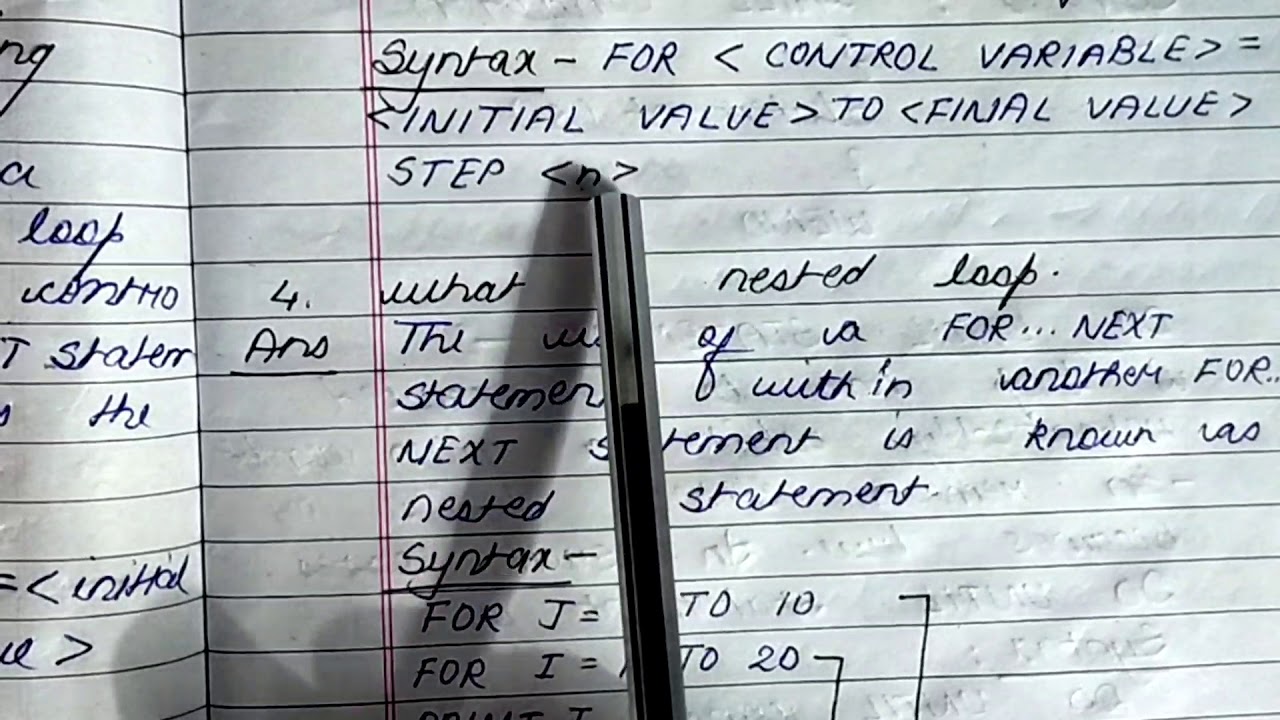 ng
a
loop
contro
T statem
s the
=<initial
ue >
Syntax - FOR < CONTROL VARIABLE> =
<INITIAL VALUE> TO <FINAL VALUE>
STEP <n>
4. what nested loop.
Ans The of a FOR... NEXT
statemen within another FOR..
NEXT s tement is known as
nested statement.
Syntax -
FOR J= TO 10
FOR I = TO 20
PRINT I